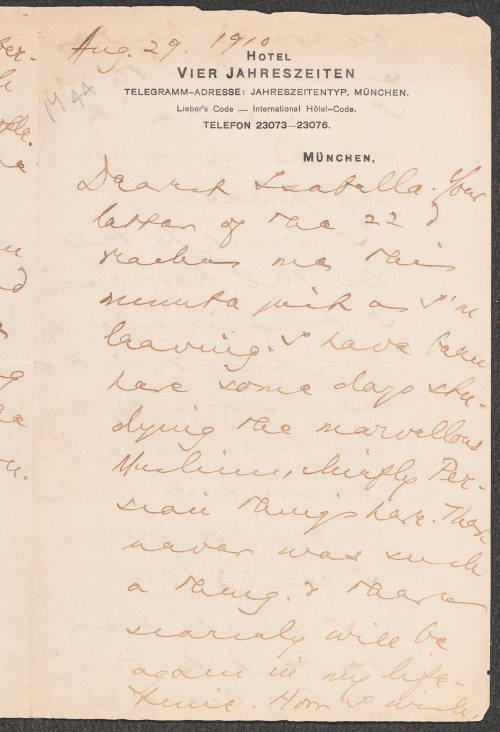 Aug. 29. 1910
HOTEL
VIER JAHRESZEITEN
TELEGRAMM-ADRESSE: JAHRESZEITENTYP, MÜNCHEN.
Lieber's Code — International Hôtel-Code.
TELEFON 23073—23076.
MÜNCHEN,
Dearest Isabella. Your
letter of the 22
reaches me this
minute just as I'm
leaving. I have been
here some days stu-
dying the marvellous
Muslim, chiefly Per-
sian things here. There
never was such
a thing. & there
scarcely will be
again in my life-
time. How I wish,